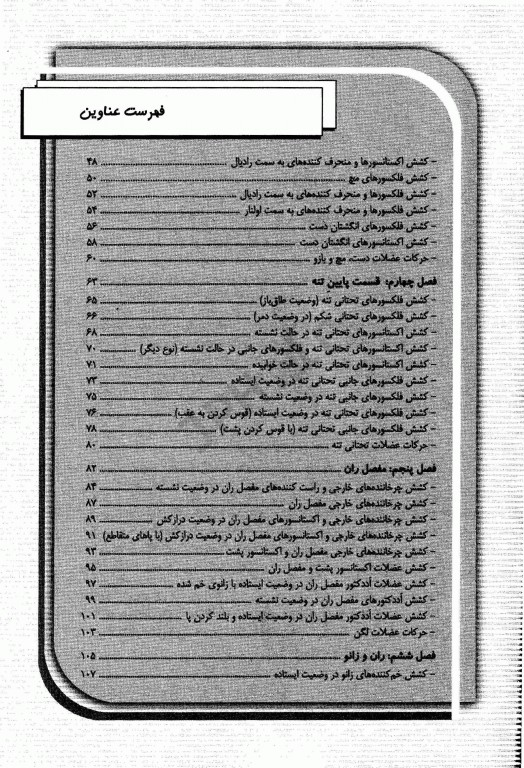 فهرست عناوین
- کشش اکستانسورها و منحرف کننده‌های به سمت رادیال ..... ۴۸
- کشش فلکسورهای مچ ..... ۵۰
- کشش فلکسورها و منحرف کننده‌های به سمت رادیال ..... ۵۲
- کشش فلکسورها و منحرف کننده‌های به سمت اولنار ..... ۵۴
- کشش فلکسورهای انگشتان دست ..... ۵۶
- کشش اکستانسورهای انگشتان دست ..... ۵۸
- حرکات عضلات دست، مچ و بازو ..... ۶۰
فصل چهارم: قسمت پایین تنه ..... ۶۳
- کشش فلکسورهای تحتانی تنه (وضعیت طاق‌باز) ..... ۶۵
- کشش فلکسورهای تحتانی شکم (در وضعیت دمر) ..... ۶۶
- کشش اکستانسورهای تحتانی تنه در حالت نشسته ..... ۶۸
- کشش اکستانسورهای تحتانی تنه و فلکسورهای جانبی در حالت نشسته (نوع دیگر) ..... ۷۰
- کشش اکستانسورهای تحتانی تنه در حالت خوابیده ..... ۷۱
- کشش فلکسورهای جانبی تحتانی تنه در وضعیت ایستاده ..... ۷۳
- کشش فلکسورهای جانبی تنه در وضعیت نشسته ..... ۷۵
- کشش فلکسورهای تحتانی تنه در وضعیت ایستاده (قوس کردن به عقب) ..... ۷۶
- کشش فلکسورهای جانبی تحتانی تنه (با قوس کردن پشت) ..... ۷۸
- حرکات عضلات تحتانی تنه ..... ۸۰
فصل پنجم: مفصل ران ..... ۸۲
- کشش چرخاننده‌های خارجی و راست کننده‌های مفصل ران در وضعیت نشسته ..... ۸۴
- کشش چرخاننده‌های خارجی مفصل ران ..... ۸۷
- کشش چرخاننده‌های خارجی و اکستانسورهای مفصل ران در وضعیت درازکش ..... ۸۹
- کشش چرخاننده‌های خارجی و اکستانسورهای مفصل ران در وضعیت درازکش (با پاهای متقاطع) ۹۱
- کشش چرخاننده‌های خارجی مفصل ران و اکستانسور پشت ..... ۹۳
- کشش عضلات اکستانسور پشت و مفصل ران ..... ۹۵
- کشش عضلات اُددکتور مفصل ران در وضعیت ایستاده با زانوی خم شده ..... ۹۷
- کشش اُددکتورهای مفصل ران در وضعیت نشسته ..... ۹۹
- کشش عضلات اُددکتور مفصل ران در وضعیت ایستاده و بلند کردن پا ..... ۱۰۱
- حرکات عضلات لگن ..... ۱۰۳
فصل ششم: ران و زانو ..... ۱۰۵
- کشش خم‌کننده‌های زانو در وضعیت ایستاده ..... ۱۰۷